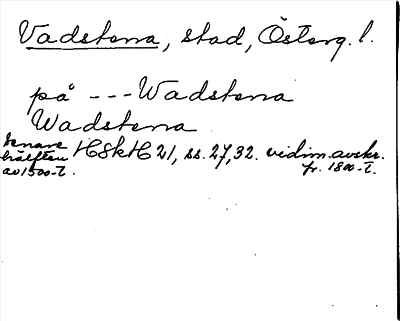 Vadstena, stad, Österg. l.
på --- Wadstena
Wadstena
senare
hälften HSkH 21, ss. 27, 32. vidim. avskr.
av 1500-t. fr. 1800-t.